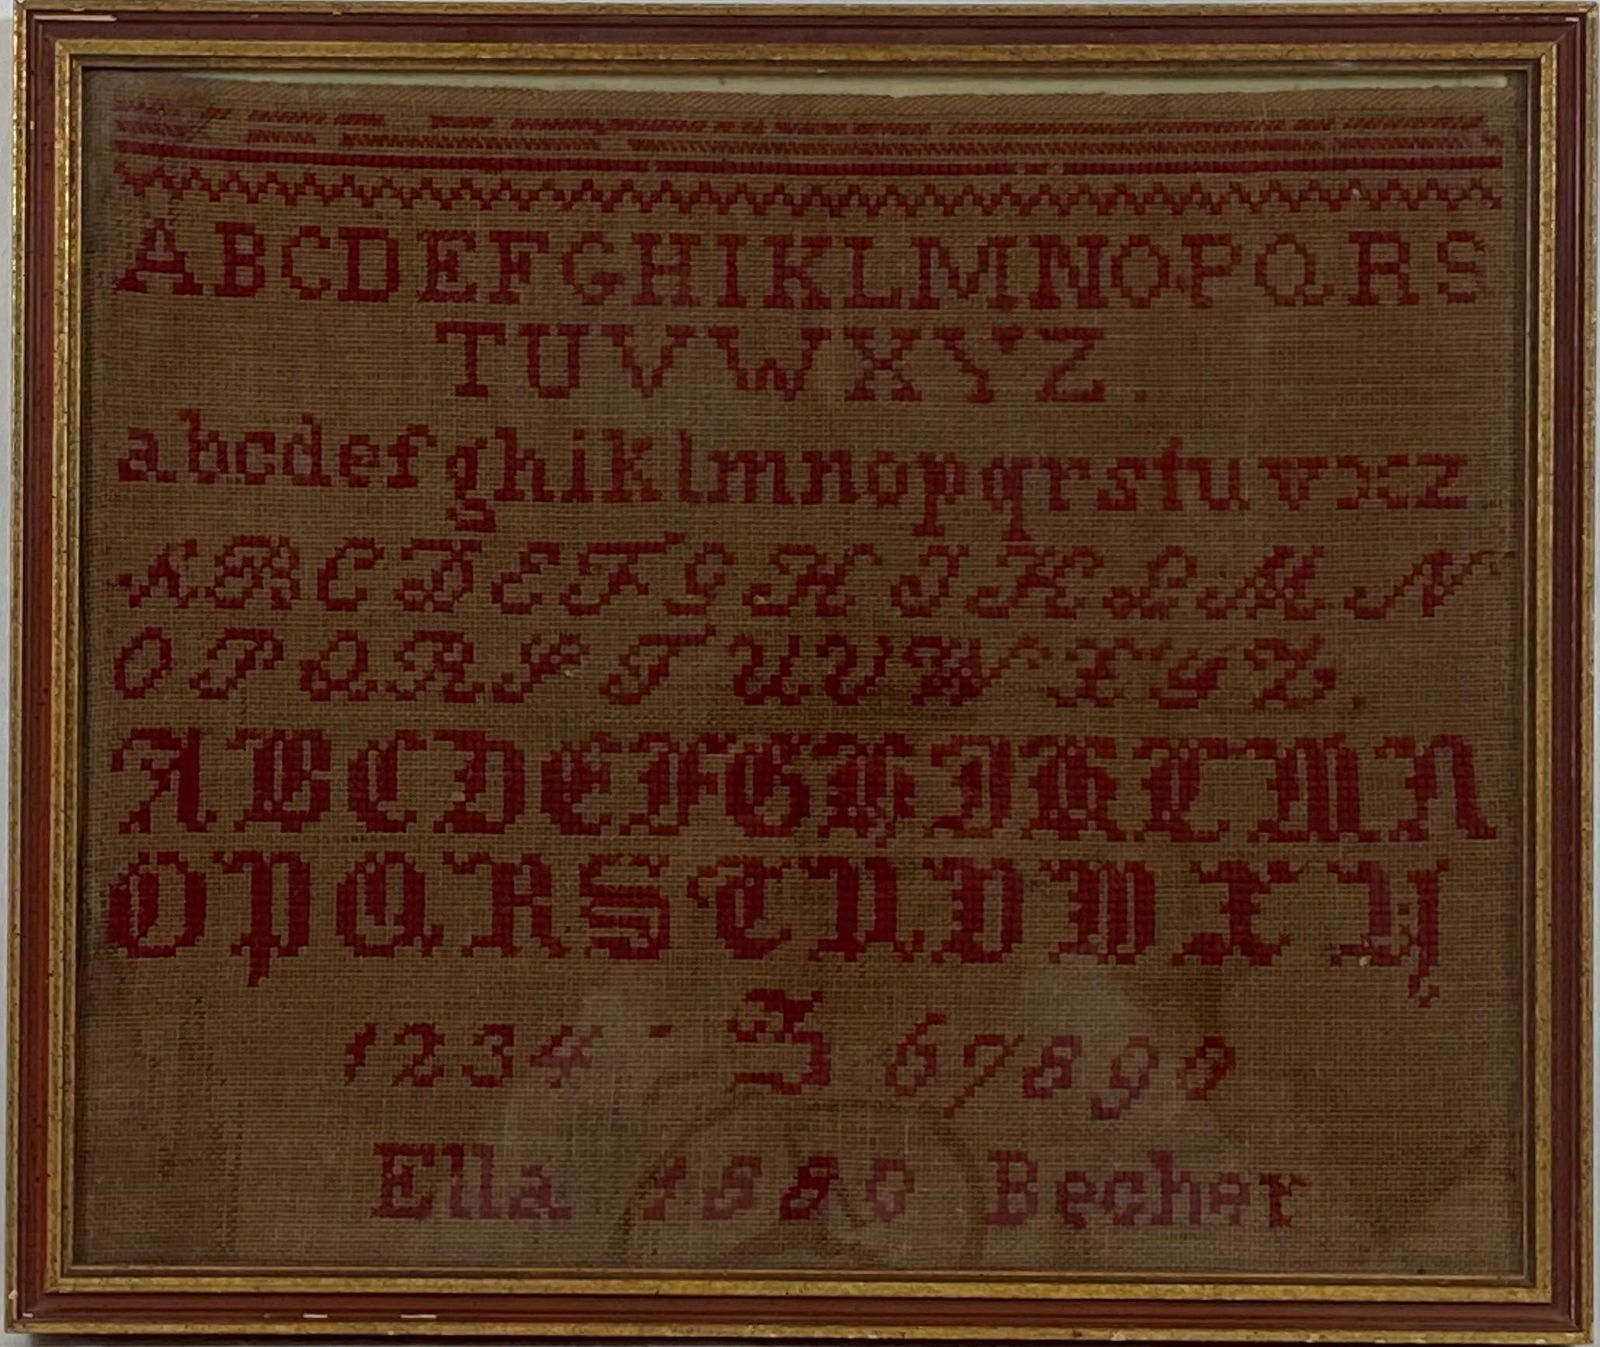 ABCDEFGHIKLMNOPQRS
TUVWXYZ.
abcdefghiklmnopqrstuvxz
ABCDEFGHIKLMN
OPQRSTUVWXYZ.
ABCDEFGHIKLMN
OPQRSTUVWXY
1234 Z 67890
Ella 1880 Becher